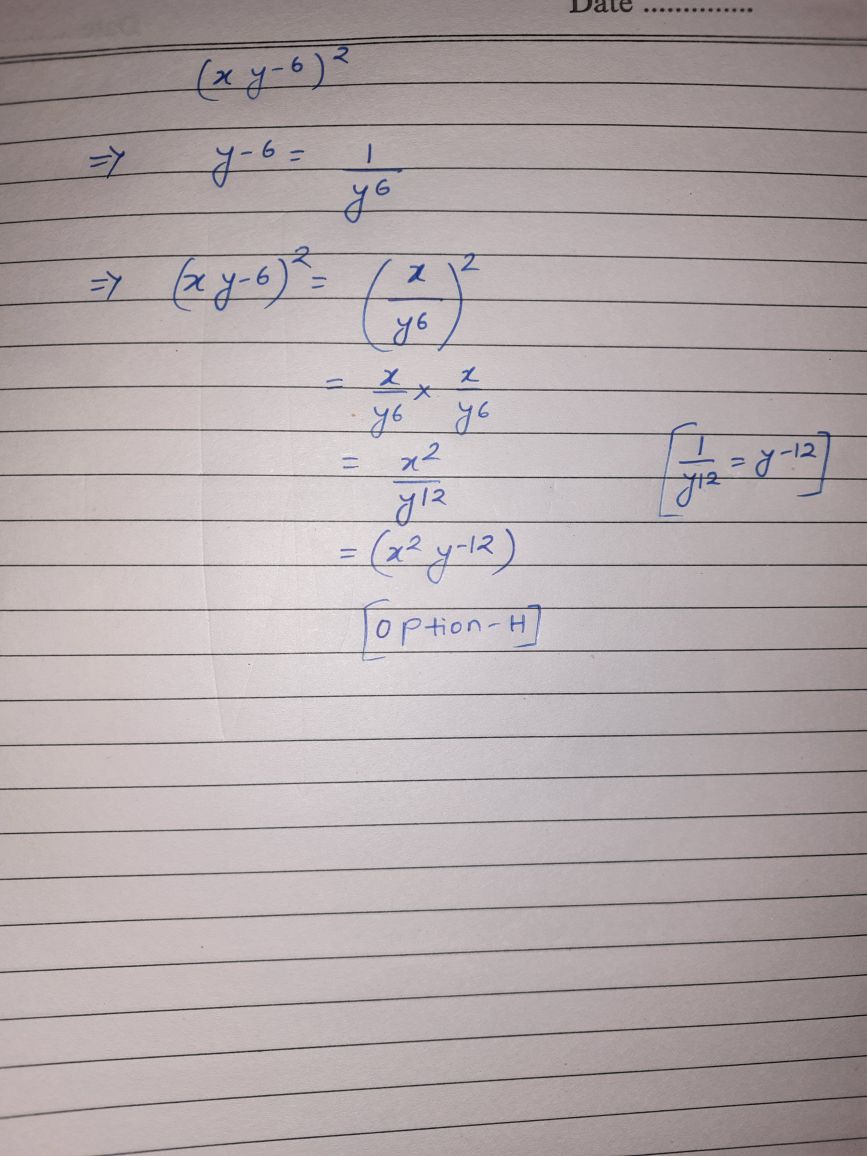 Date ..............
(x y-6)²
⇒ y-6 = 1/y6
⇒ (x y-6)² = (x/y6)²
= x/y6 × x/y6
= x2/y12 [1/y12 = y-12]
= (x2 y-12)
[Option-H]